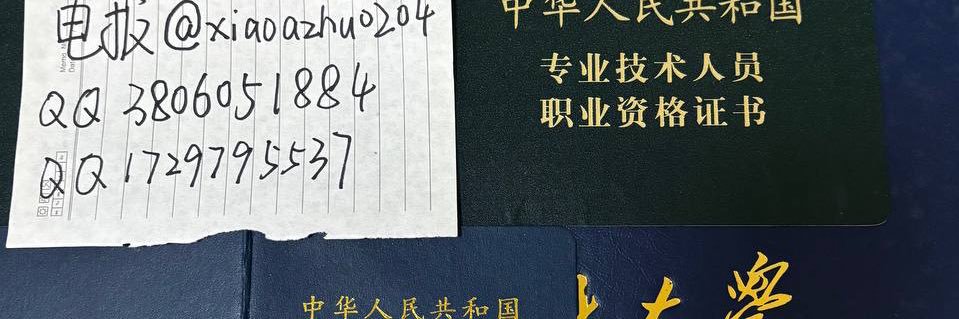 电报@xiaoazhuo204
QQ 3806051884
QQ 1729795537
中华人民共和国
专业技术人员
职业资格证书
中华人民共和国
大学